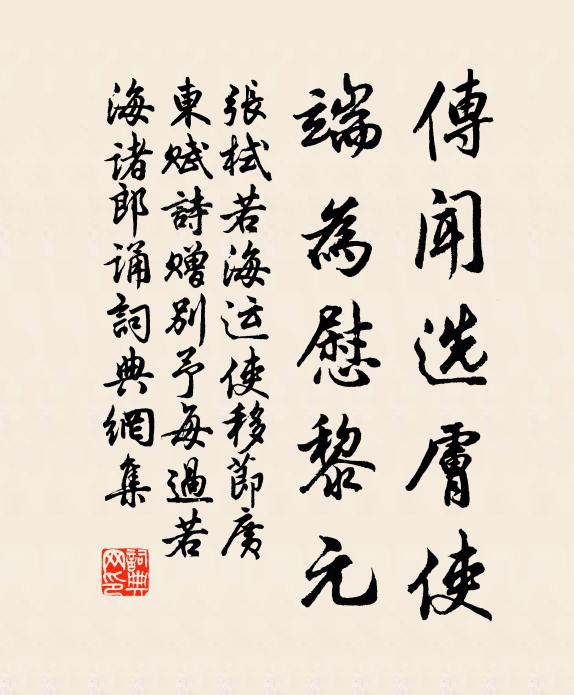 傳聞選膚使
端為慰黎元
張栻若海运使移節廣
東賦詩赠別予每過若
海诸郎誦詞典網集
詞典網印